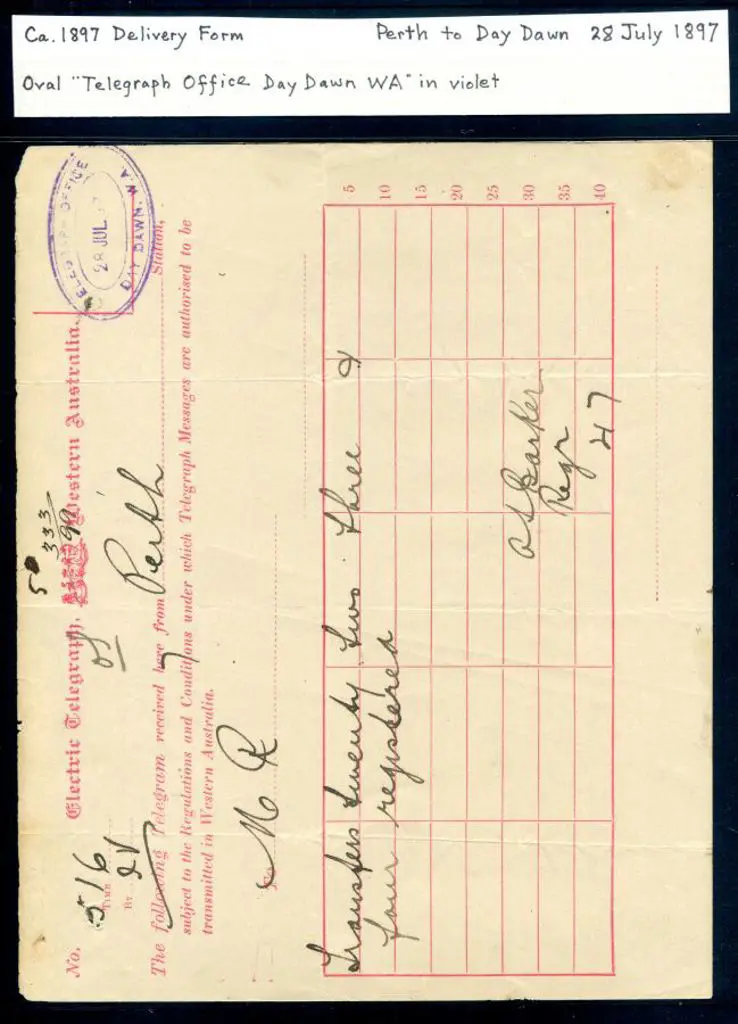 Ca. 1897 Delivery Form Perth to Day Dawn 28 July 1897
Oval "Telegraph Office Day Dawn WA" in violet
No. Electric Telegraph, Western Australia.
TELEGRAPH OFFICE
28 JUL
DAY DAWN. W.A.
333
99
TIME 516
BY
The following Telegram received here from Perth Station,
subject to the Regulations and Conditions under which Telegraph Messages are authorised to be
transmitted in Western Australia.
To M R
5
10
15
20
25
30
35
40
Transfers twenty two three &
four registered
Barker
Regr
47